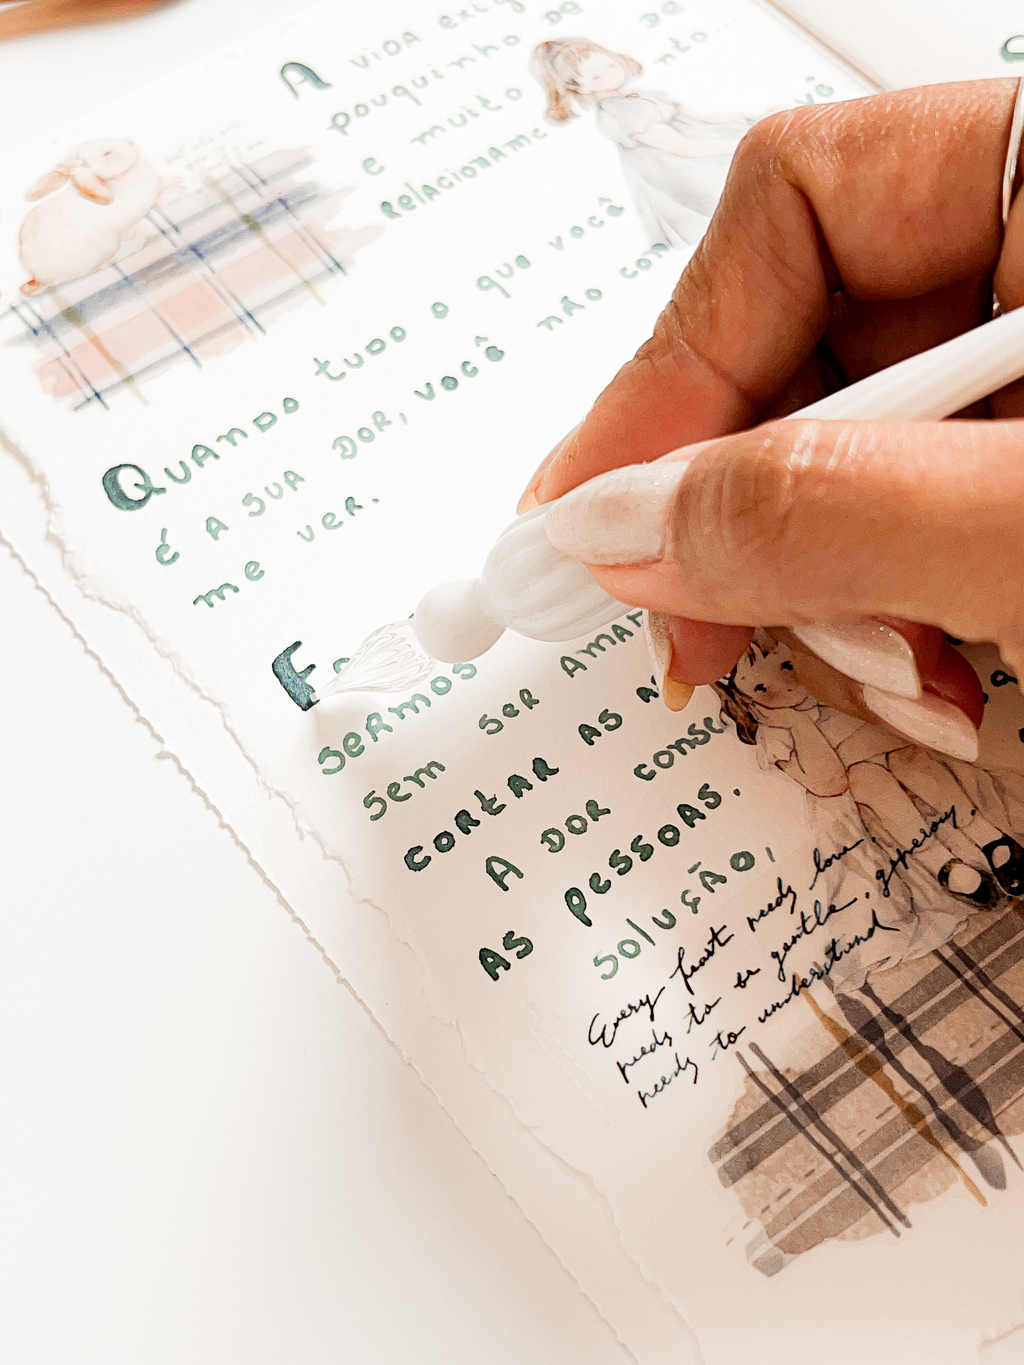 A VIDA exig
pouquinho DE DE
e muito nto...
RELACIONAME vê
QUANDO tudo o que você
é A SUA DOR, você não con
me ver.
F
SERMOS
sem ser AMAR
CORTAR AS
A DOR conse
AS pessoas.
solução,
Every heart needs love,
needs to be gentle, generosy.
needs to understand